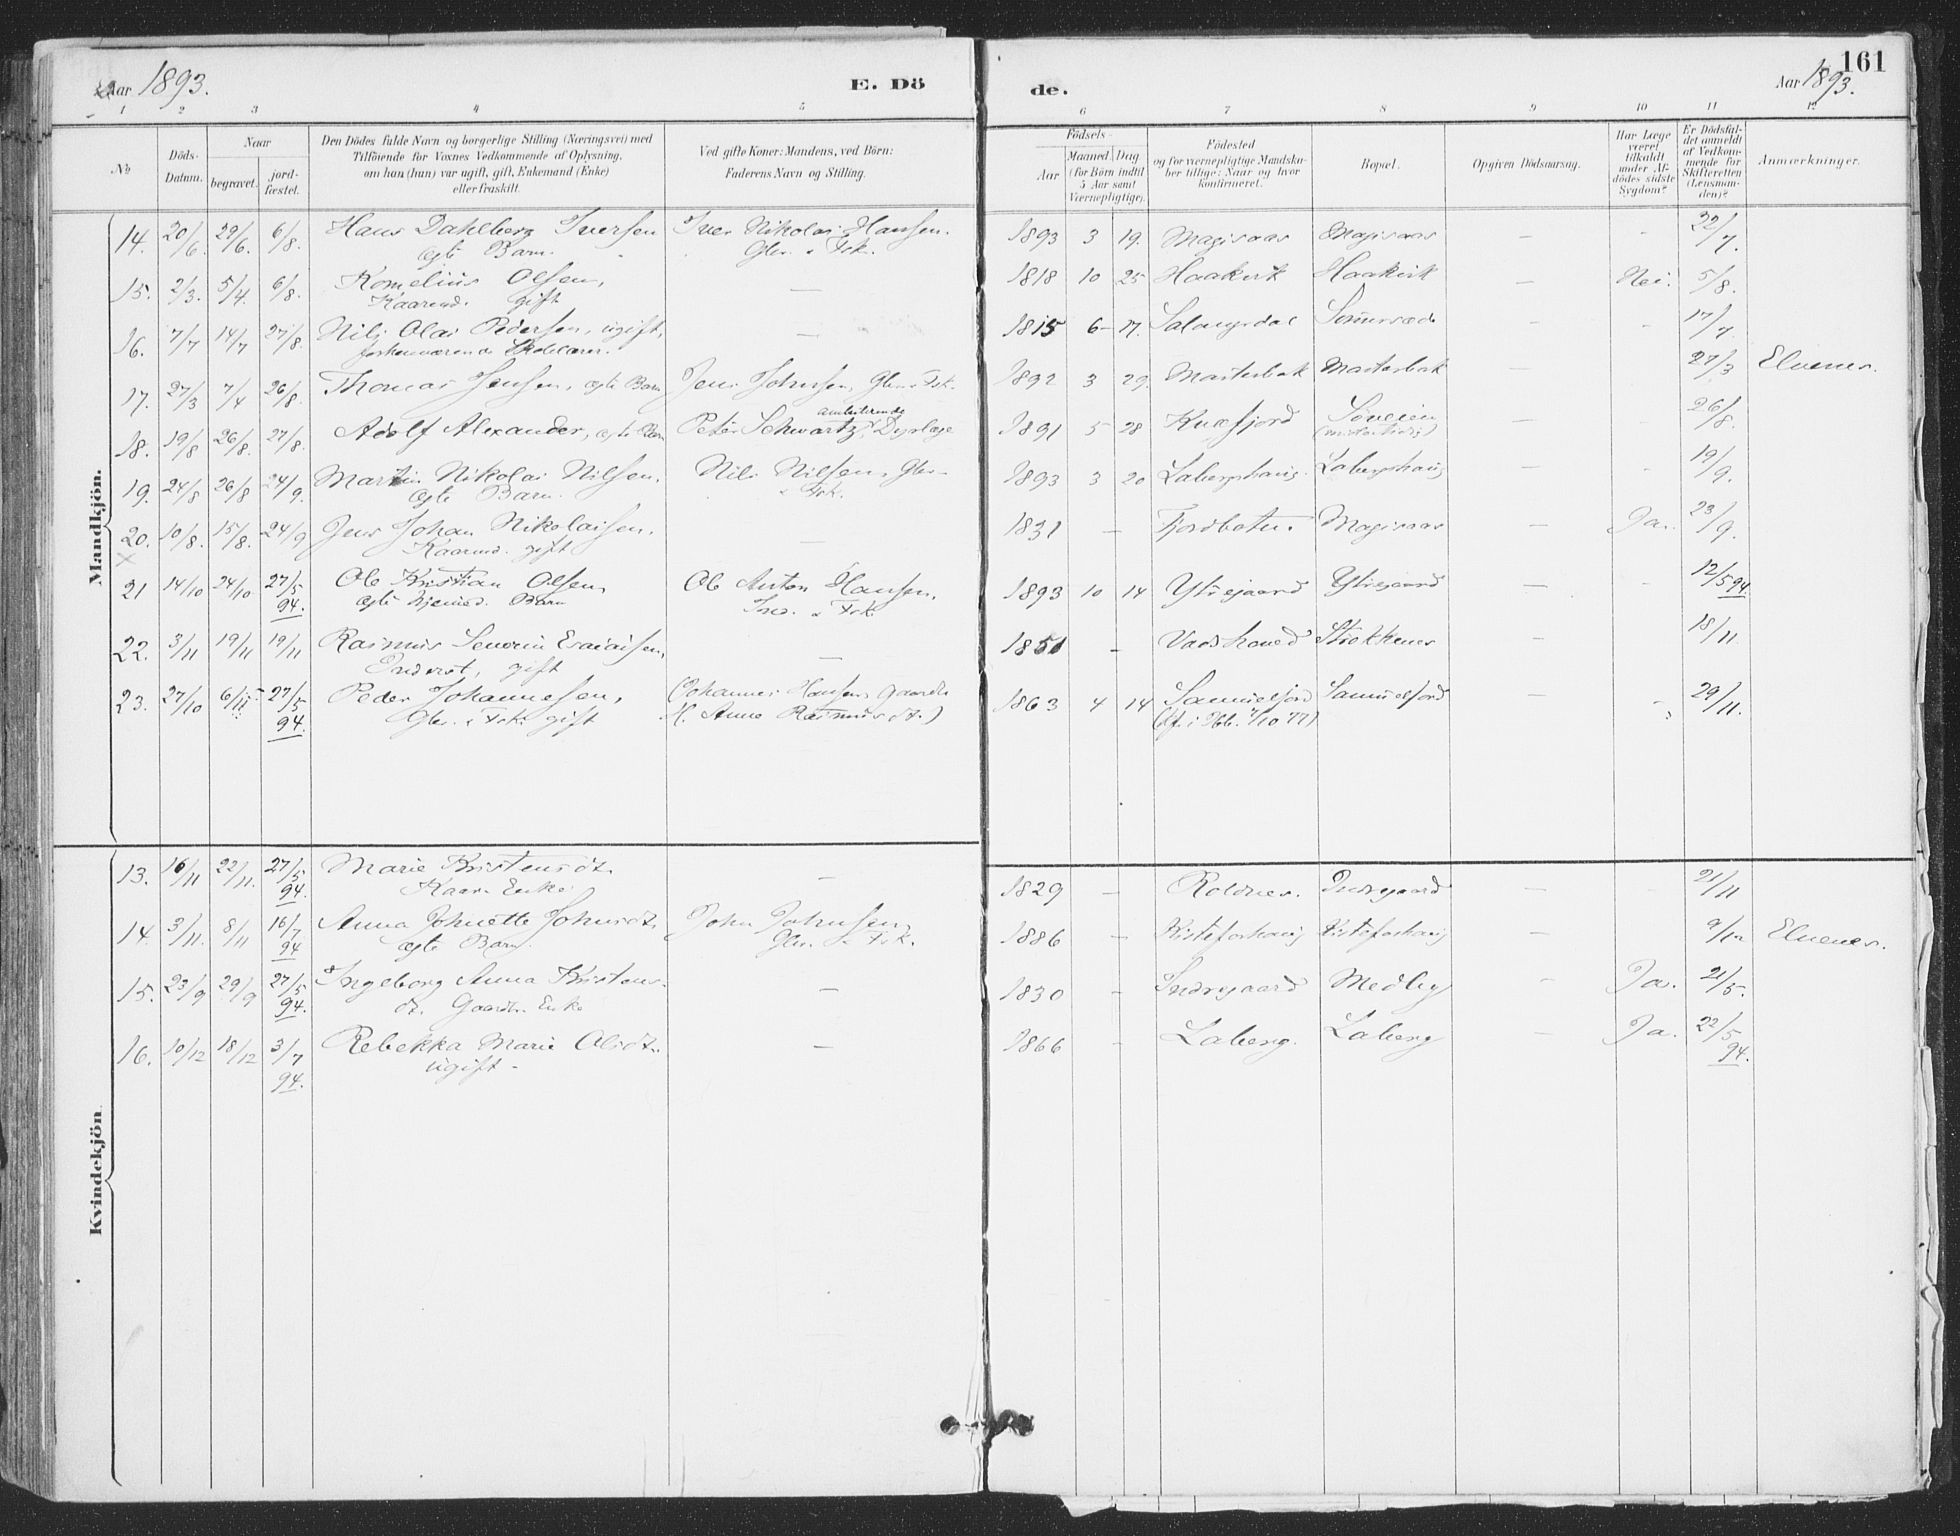 Aar 1893.
E. Dö
de.
161
Aar 1893.
1 2 3 4 5 6 7 8 9 10 11 12
No
Döds-Datum.
Naar
begravet.
jord-fæstet.
Den Dödes fulde Navn og borgerlige Stilling (Næringsvei) med
Tilföiende for Voxnes Vedkommende af Oplysning,
om han (hun) var ugift, gift, Enkemand (Enke)
eller fraskilt.
Ved gifte Koner: Mandens, ved Börn:
Faderens Navn og Stilling.
Födsels-
Aar
Maaned Dag
(for Börn indtil
5 Aar samt
Værnepligtige).
Födested
og for værnepligtige Mandsku-
ber tillige: Naar og hvor
konfirmeret.
Bopæl.
Opgiven Dödsaarsag.
Har Læge
været
tilkaldt
under Af-
dödes sidste
Sygdom?
Er Dödsfal-
det anmeldt
af Vedkom-
mende for
Skifteretten
(Lensman-
den)?
Anmærkninger.
Mandkjön.
14. 20/6. 29/6. 6/8. Hans Dahlberg Iversen Iver Nikolai Hansen. 1893 3 19. Magisaas Magisaas — - 22/7.
ægte Barn. Gbr. & Fsk.
15. 2/3. 5/4. 6/8. Kornelius Olsen, — 1818 10 25 Haakvik Haakvik — Nei. 5/8.
Kaarmd. gift
16. 7/7 14/7 27/8. Nils Olai Pedersen, ugift, — 1815 6 17. Salangsdal — - 17/7.
forhenværende Skolelærer.
17. 27/3 7/4 26/8. Thomas Jensen, ægte Barn Jens Johnsen, Gbr. & Fsk. 1892 3 29. Masterbak Masterbak — 27/3 Elvenes.
18. 19/8 26/8. 27/8. Adolf Alexander, ægte Barn Peter Schwartz, ambulerende Dyrlæge 1891 5 28 Kvæfjord — - 26/8.
19. 24/8 26/8 24/9. Martin Nikolai Nilsen. Nils Nilsen, Gbr. 1893 3 20 Labergshaug. Labergshaug — 19/9.
ægte Barn. & Fsk.
20. 10/8. 15/8. 24/9 Jens Johan Nikolaisen. — 1831 — Fjordbotn. Magisaas — Ja. 23/9.
Kaarmd. gift
21 14/10 24/10 27/5 94. Ole Kristian Olsen, Ole Anton Hansen, 1893 10 14 Ytregaard Ytregaard — - 12/5 94.
ægte hjemmed. Barn Ind. & Fsk.
22. 3/11 19/11 19/11 Rasmus Severin Esaiasen, — 1851 — Strokkenes — 18/11.
gift
23. 27/10 6/11 27/5 94. Peder Johannesen, (Johannes Hansen Gaardbr. 1863 4 14 Samuelsfjord Samuelsfjord — - 29/11.
Gbr. & Fsk. gift H. Anne Rasmusdt.) (kf. i Ibb. 7/10 77)
Kvindekjön
13. 16/11 22/11. 27/5 94. Marie Kristensdt. — 1829 — Roldnes. Indregaard — — 21/11
Kaar. Enke.
14. 3/11. 8/11 16/7 94 Anna Johnette Johnsdt. John Johnsen, 1886 — Kistefoshaug Kistefoshaug — 9/12 Elvenes.
ægte Barn. Gbr. & Fsk.
15. 23/9 29/9 27/5 94. Ingeborg Anna Kristens- — 1830 — Indregaard Medby — Ja. 21/5.
dt. Gaardbr. Enke
16. 10/12 18/12 3/7 94. Rebekka Marie Olsdt. — 1866 — Laberg. Laberg — Ja. 22/5 94.
ugift -